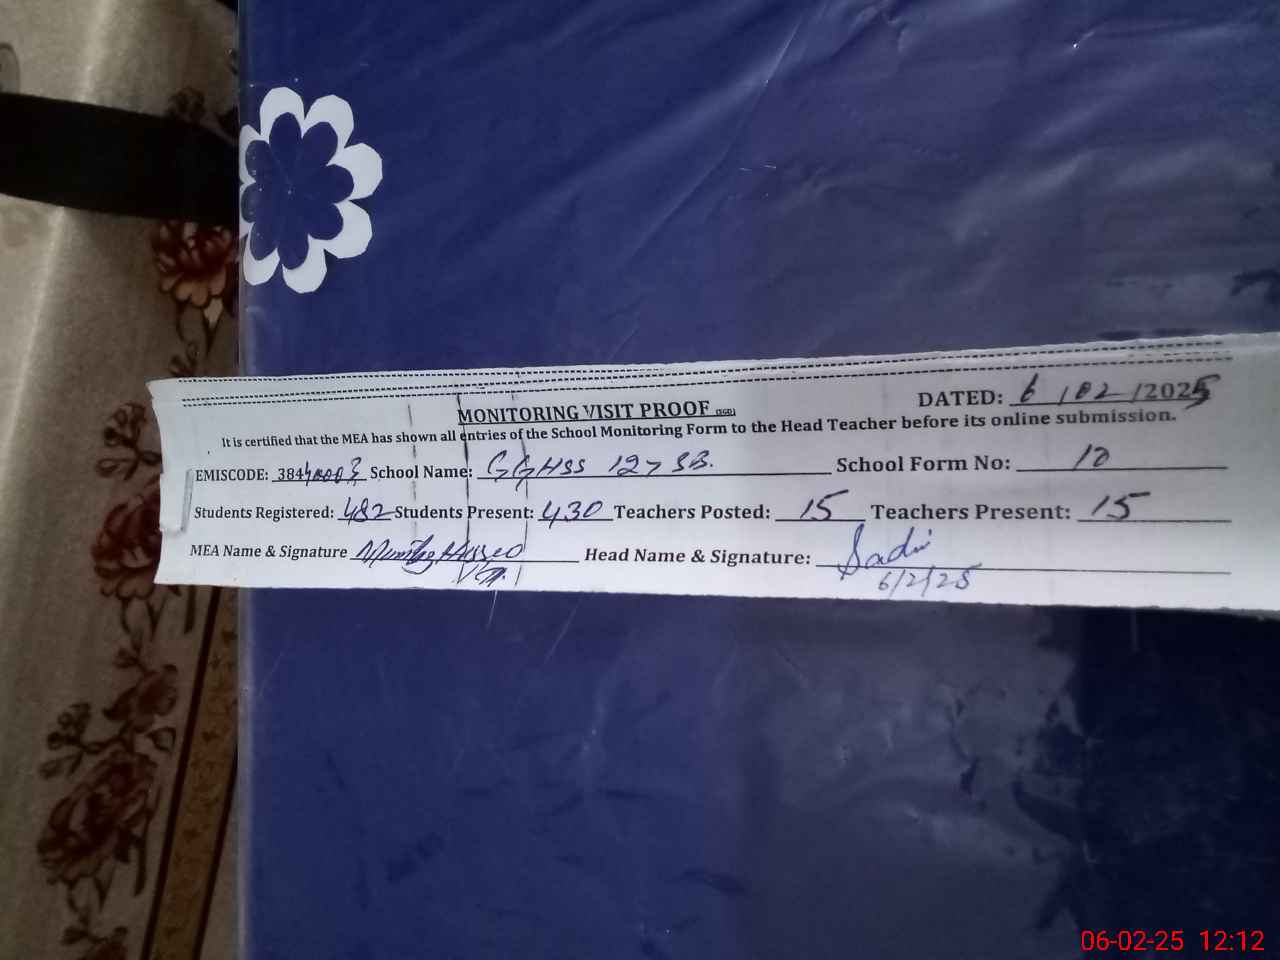 DATED: 6/02/2025
MONITORING VISIT PROOF (SGD)
It is certified that the MEA has shown all entries of the School Monitoring Form to the Head Teacher before its online submission.
EMISCODE: School Name: GGHSS 127 SB. School Form No: 10
Students Registered: 482 Students Present: 430 Teachers Posted: 15 Teachers Present: 15
MEA Name & Signature Head Name & Signature: Sadi
6/2/25
06-02-25 12:12